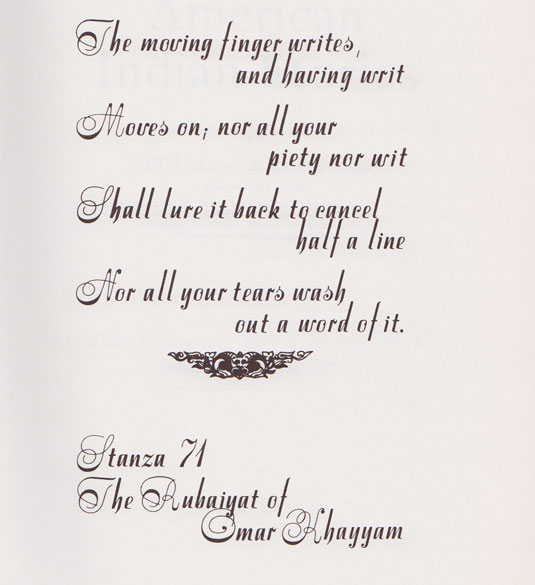 The moving finger writes,
and having writ
Moves on; nor all your
piety nor wit
Shall lure it back to cancel
half a line
Nor all your tears wash
out a word of it.
Stanza 71
The Rubaiyat of
Omar Khayyam
American
Indian Stories
ZITKALA-SA